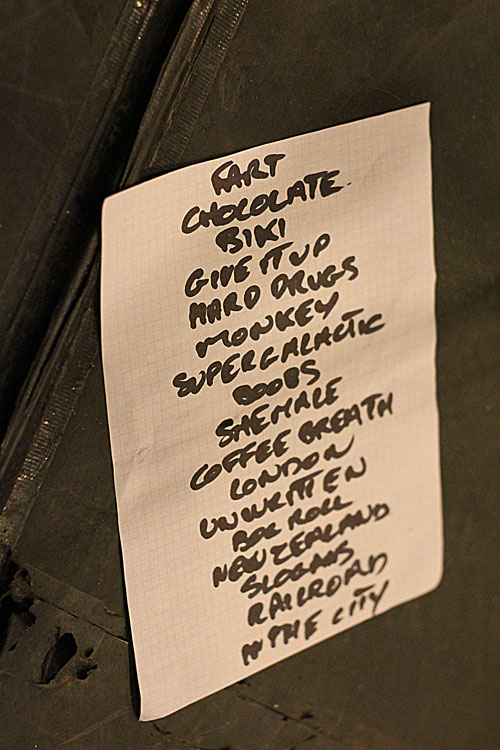 FART
CHOCOLATE
BIKI
GIVE IT UP
HARD DRUGS
MONKEY
SUPERGALACTIC
BOOBS
SHEMALE
COFFEE BREATH
LONDON
UNWRITTEN
ROLL
NEW ZEALAND
SLOGANS
RAILROAD
IN THE CITY